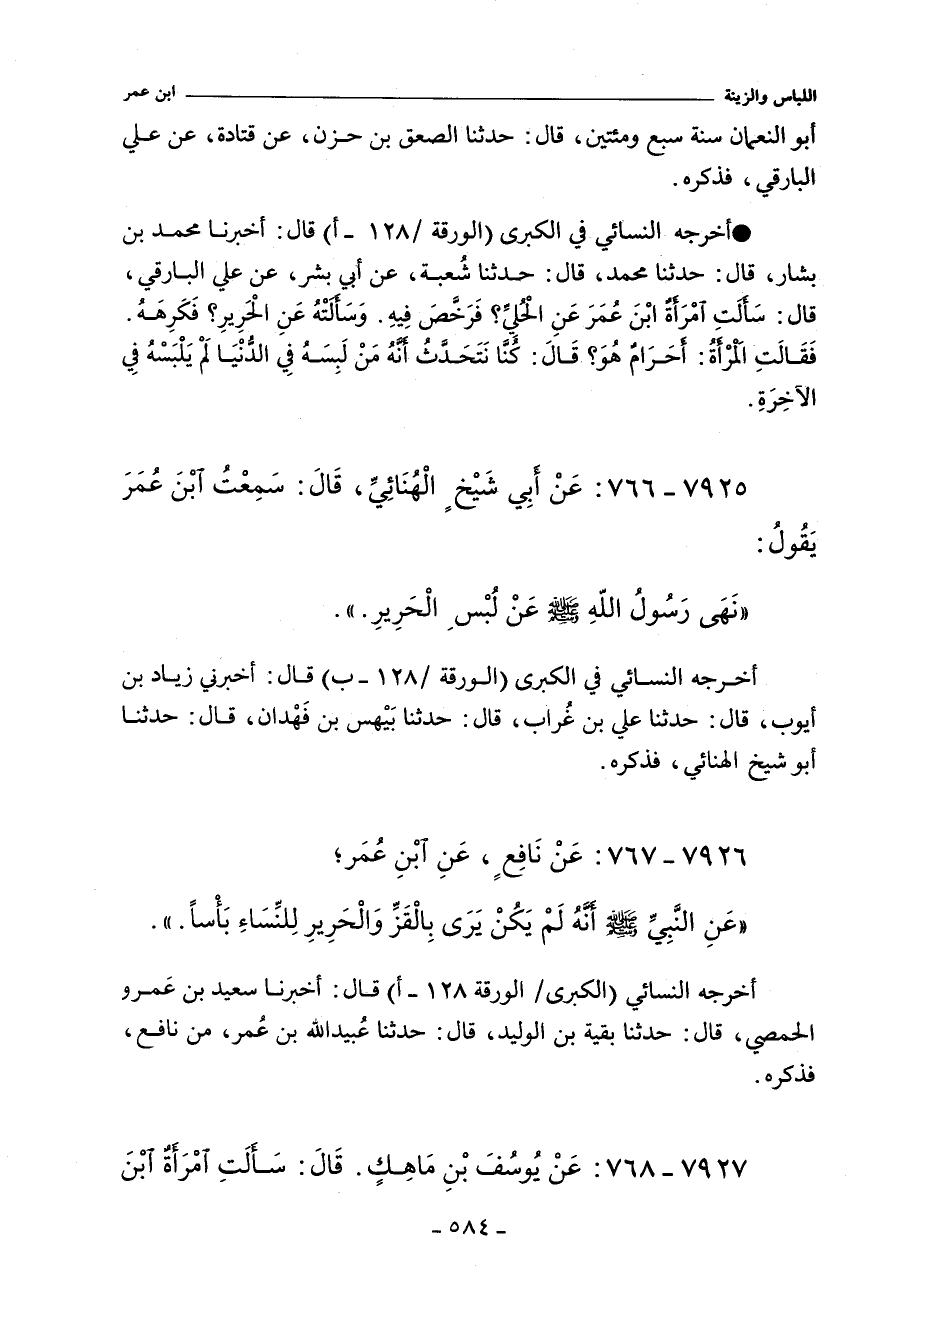 اللباس والزينة ــــــــــــــــــــ ابن عمر
أبو النعمان سنة سبع ومئتين، قال: حدثنا الصعق بن حزن، عن قتادة، عن علي
البارقي، فذكره.
●أخرجه النسائي في الكبرى (الورقة /١٢٨ - أ) قال: أخبرنا محمد بن
بشار، قال: حدثنا محمد، قال: حدثنا شُعبة، عن أبي بشر، عن علي البارقي،
قال: سَأَلَتِ ٱمْرَأَةٌ ابْنَ عُمَرَ عَنِ الْحُلِيِّ؟ فَرَخَّصَ فِيهِ. وَسَأَلَتْهُ عَنِ الْحَرِيرِ؟ فَكَرِهَهُ.
فَقَالَتِ الْمَرْأَةُ: أَحَرَامٌ هُوَ؟ قَالَ: كُنَّا نَتَحَدَّثُ أَنَّهُ مَنْ لَبِسَهُ فِي الدُّنْيَا لَمْ يَلْبَسْهُ فِي
الآخِرَةِ.
٧٩٢٥ - ٧٦٦: عَنْ أَبِي شَيْخٍ الْهُنَائِيِّ، قَالَ: سَمِعْتُ ٱبْنَ عُمَرَ
يَقُولُ:
«نَهَى رَسُولُ اللّهِ ﷺ عَنْ لُبْسِ الْحَرِيرِ.».
أخرجه النسائي في الكبرى (الورقة /١٢٨ - ب) قال: أخبرني زياد بن
أيوب، قال: حدثنا علي بن غُراب، قال: حدثنا بَيْهس بن فَهْدان، قال: حدثنا
أبو شيخ الهنائي، فذكره.
٧٩٢٦ - ٧٦٧: عَنْ نَافِعٍ، عَنِ ٱبْنِ عُمَر؛
«عَنِ النَّبِيِّ ﷺ أَنَّهُ لَمْ يَكُنْ يَرَى بِالْقَزِّ وَالْحَرِيرِ لِلنِّسَاءِ بَأْساً.».
أخرجه النسائي (الكبرى/ الورقة ١٢٨ - أ) قال: أخبرنا سعيد بن عَمرو
الحمصي، قال: حدثنا بقية بن الوليد، قال: حدثنا عُبيدالله بن عُمر، من نافع،
فذكره.
٧٩٢٧ - ٧٦٨: عَنْ يُوسُفَ بْنِ مَاهِكٍ. قَالَ: سَأَلَتِ ٱمْرَأَةٌ ٱبْنَ
- ٥٨٤ -